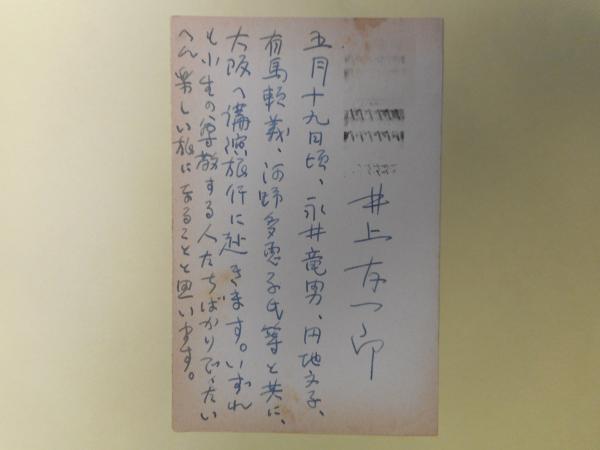 井上友一郎
五月十九日頃、永井竜男、円地文子、
有馬頼義、河野多恵子氏等と共に、
大阪へ講演旅行に赴きます。いずれ
も小生の尊敬する人たちばかりで、たい
へん楽しい旅になることと思います。